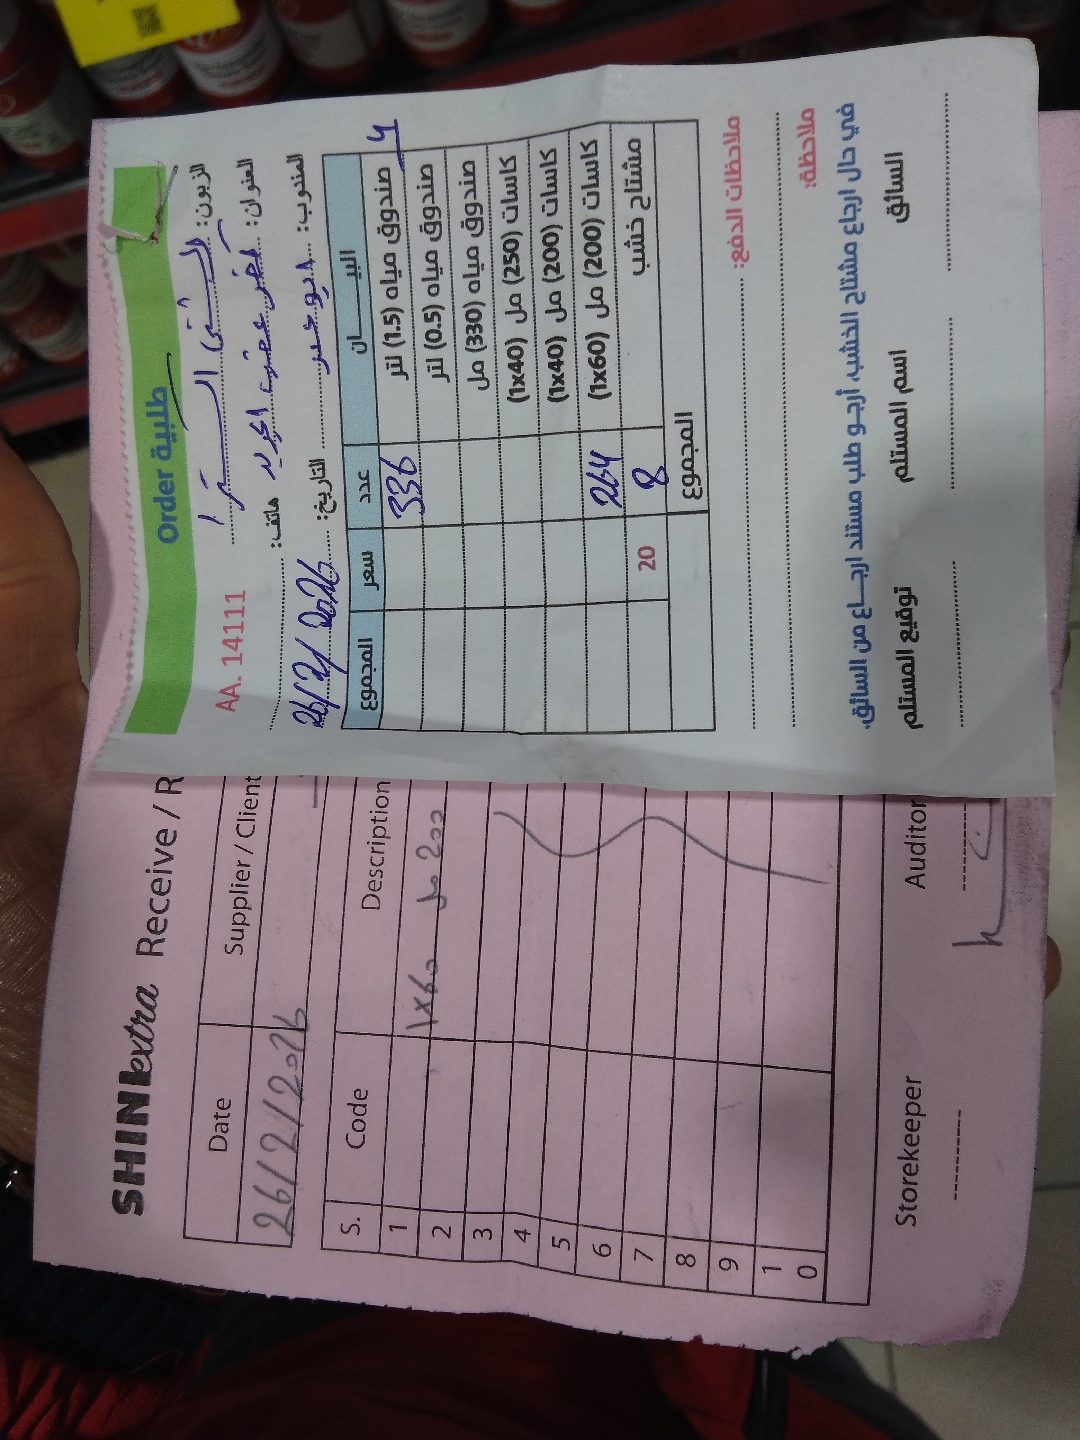 Order طلبية
AA. 14111
الزبون:
العنوان: هاتف:
المندوب: ابو جبر التاريخ: 26/2/2026
البيـــــان عدد سعر المجموع
صندوق مياه (1.5) لتر 336
صندوق مياه (0.5) لتر
صندوق مياه (330) مل
كاسات (250) مل (1x40)
كاسات (200) مل (1x40)
كاسات (200) مل (1x60) 264
مشتاح خشب 8 20
المجموع
ملاحظات الدفع:
ملاحظة:
في حال ارجاع مشتاح الخشب، أرجو طلب مستند ارجـــاع من السائق.
السائق اسم المستلم توقيع المستلم
SHINextra Receive / R
Date Supplier / Client
26/2/2026
S. Code Description
1 1x60 مل 200
2
3
4
5
6
7
8
9
10
Storekeeper Auditor